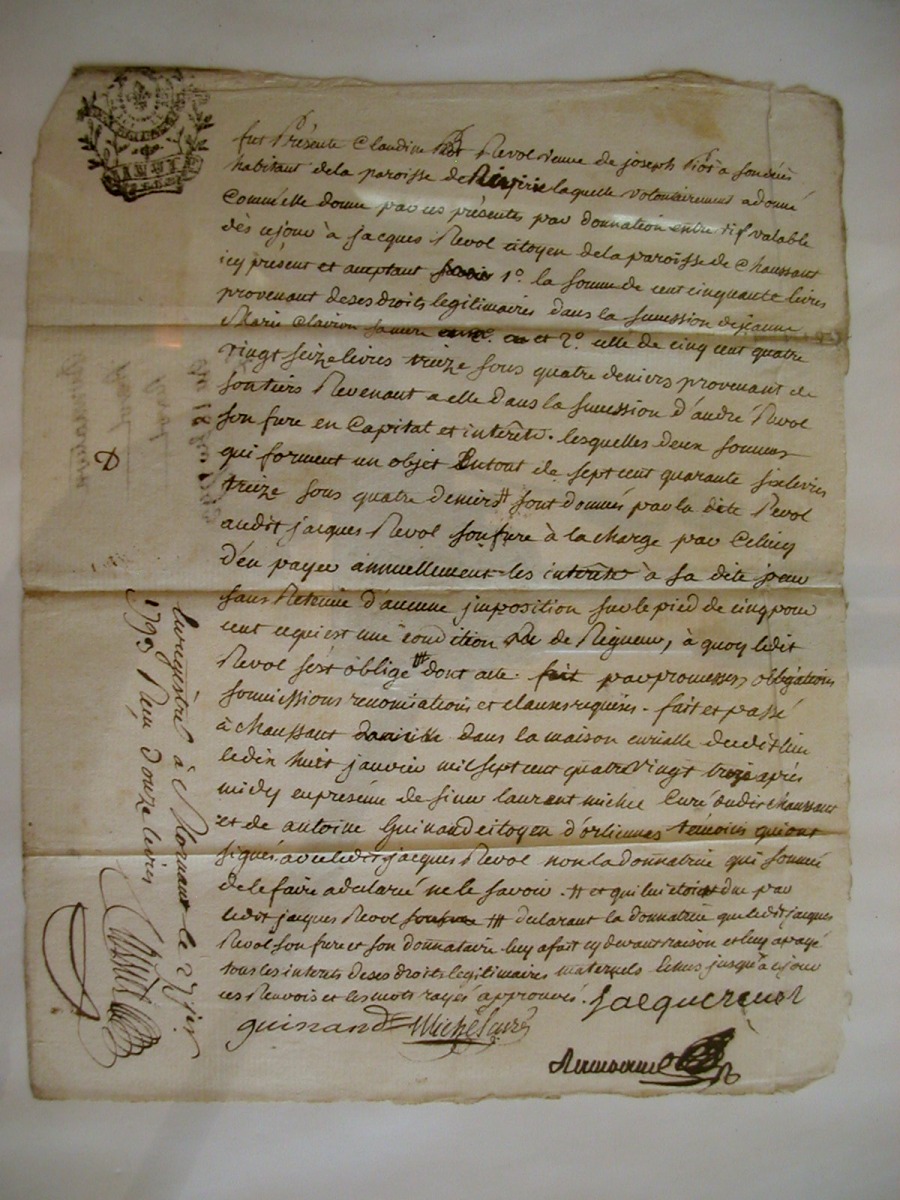 fut Présente Claudine Revol vienne de joseph Rot a son décès
habitant de la paroisse de laquelle volontairement a donné
Comme elle donne par ces présentes par donnation entre vif valable
dès ce jour à jacques Revol citoyen de la paroisse de Chaussant
icy présent et aceptant 1°. la somme de cent cinquante livres
provenant de ses droits légitimaires dans la sucession de jeanne
Marie Clavion sa mere et 2°. celle de cinq cent quatre
vingt seize livres treize sous quatre deniers provenant de
son tiers Revenant a elle dans la sucession d'andré Revol
son frere en Capital et interêts. lesquelles deux sommes
qui forment un objet En tout de sept cent quarante six livres
treize sous quatre deniers # sont donnés par la dite Revol
audit jacques Revol son frere à la charge par Celuicy
d'en payer annuellement les interêts à sa dite soeur
sans Retenue d'aucune jmposition sur le pied de cinq pour
cent ce qui est une condition de Rigueur, à quoy ledit
Revol s'est obligé dont acte. fait par promesses, obligations
soumissions renonciations et clauses requises. fait et passé
à chaussant dans la maison curialle dudit lieu
le dix huit janvier mil sept cent quatre vingt treize après
midy en présence de sieur laurent michel Curé dudit chaussant
et de antoine Guinand citoyen d'orliennas témoins qui ont
signés avec ledit jacques Revol non la donnatrice qui sommé
de le faire a déclaré ne le savoir. # et qui lui étoient due par
ledit jacques Revol ### déclarant la donnatrice que ledit jacques
Revol son frere et son donnataire luy a fait cy devant raison et luy a payé
tous les interets de ses droits légitimaires maternels échus jusqu'à ce jour
ces Renvois et les mots rayés approuvés. jacque revol
guinand Michel curé
Enregistré à Mornant le 27 jer
1793 Reçu douze livres